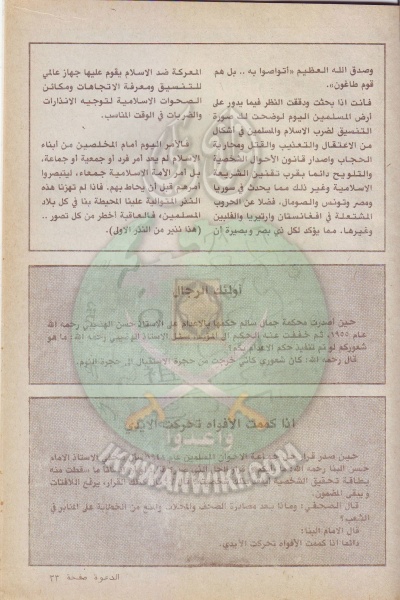 وصدق الله العظيم «أتواصوا به .. بل هم
قوم طاغون».
فأنت اذا بحثت ودققت النظر فيما يدور على
أرض المسلمين اليوم لوضحت لك صورة
التنسيق لضرب الاسلام والمسلمين في أشكال
من الاعتقال والتعذيب والقتل ومحاربة
الحجاب واصدار قانون الأحوال الشخصية
والتلويح دائما بقرب تقنين الشريعة
الاسلامية وغير ذلك مما يحدث في سوريا
ومصر وتونس والصومال. فضلا عن الحروب
المشتعلة في افغانستان وارتيريا والفلبين
وغيرها. مما يؤكد لكل ذي بصر وبصيرة أن
المعركة ضد الاسلام يقوم عليها جهاز عالمي
للتنسيق ومعرفة الاتجاهات ومكامن
الصحوات الاسلامية لتوجيه الانذارات
والضربات في الوقت المناسب.
فالأمر اليوم أمام المخلصين من ابناء
الاسلام لم يعد أمر فرد أو جمعية أو جماعة.
بل أمر الأمة الاسلامية جمعاء، ليتبصروا
أمرهم قبل أن يحاط بهم. فاذا لم تهزنا هذه
النذر المتوالية علينا المحيطة بنا في كل بلاد
المسلمين، فالعاقبة أخطر من كل تصور ..
(هذا نذير من النذر الأولى).
أولئك الرجال
حين أصدرت محكمة جمال سالم حكمها بالاعدام على الاستاذ حسن الهضيبي رحمه الله
عام ١٩٥٥. ثم خففت عنه الحكم الى المؤبد، سئل الاستاذ الهضيبي رحمه الله: ما هو
شعوركم لو تم تنفيذ حكم الاعدام بكم؟
قال رحمه الله: كان شعوري كأني خرجت من حجرة الاستقبال الى حجرة النوم.
اذا كممت الأفواه تحركت الأيدي
حين صدر قرار جماعة الاخوان المسلمين عام الاستاذ الامام
حسن البنا رحمه الله
بطاقة تحقيق الشخصية القرار، يرفع اللافتات
ويبقى المضمون.
قال الصحفي: وماذا بعد مصادرة الصحف والمجلات ومنع من الخطابة على المنابر في
الشعب؟
قال الامام البنا:
دائما اذا كممت الأفواه تحركت الأيدي.
وأعدوا
IKHWANWIKI.COM
الدعوة صفحة ٣٣